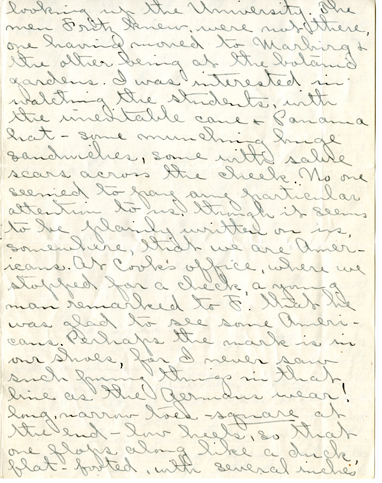 looking up the University. The
men Fritz knew, were not there,
one having moved to Marburg &
the other being at the botanic
gardens. I was interested in
watching the students, with
the inevitable cane & Panama
hat - some munching huge
sandwiches, some with sabre
scars across the cheek. No one
seemed to pay any particular
attention to us, though it seems
to be plainly written on us,
somewhere, that we are Amer-
icans. At Cook's office, where we
stopped for a check, a young
man remarked to F. that he
was glad to see some Ameri-
cans. Perhaps the mark is in
our shoes, for I never saw
such funny things in that
line as the Germans wear!
long, narrow toes - square at
the end - low heels, so that
one flops along like a duck,
flat-footed, with several inches